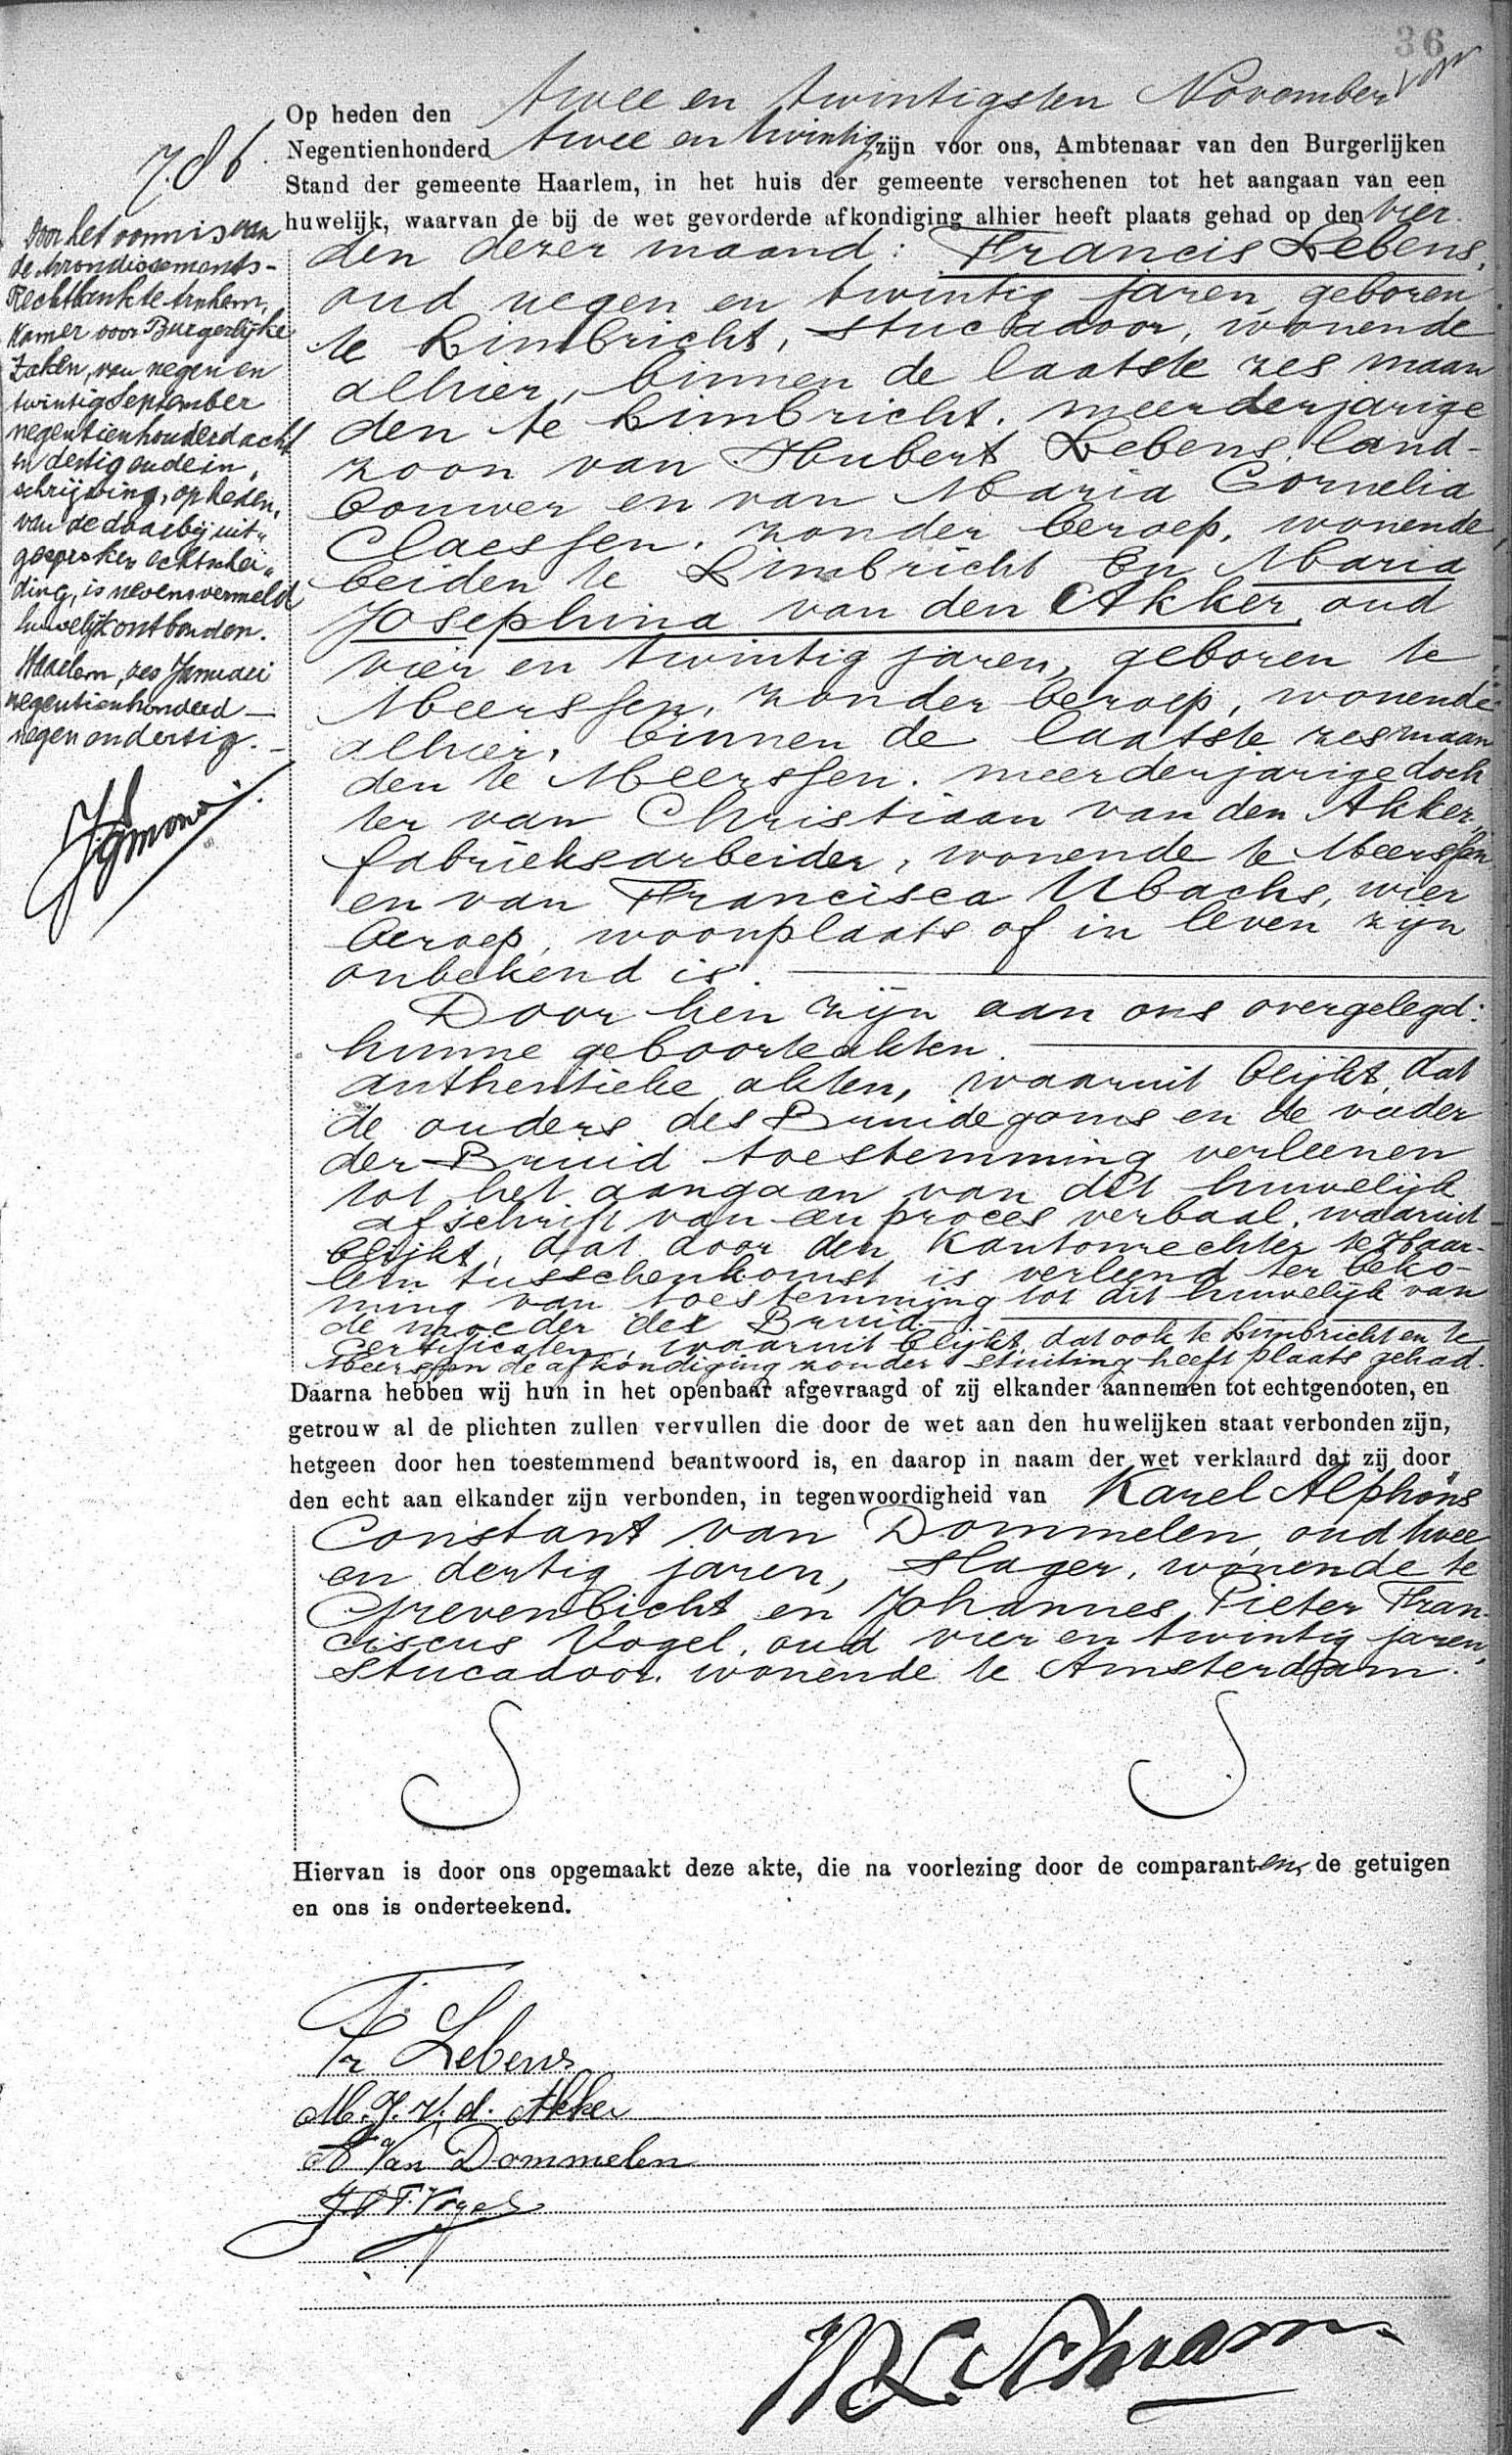 36
Op heden den twee en twintigsten November
Negentienhonderd twee en twintig zijn voor ons, Ambtenaar van den Burgerlijken
Stand der gemeente Haarlem, in het huis der gemeente verschenen tot het aangaan van een
huwelijk, waarvan de bij de wet gevorderde afkondiging alhier heeft plaats gehad op den vier
den dezer maand: Francis Lebens,
oud negen en twintig jaren, geboren
te Limbricht, stucadoor, wonende
alhier, binnen de laatste zes maan
den te Limbricht. meerderjarige
zoon van Hubert Lebens, land-
bouwer en van Maria Cornelia
Claessen, zonder beroep, wonende,
beiden te Limbricht En Maria
Josephina van den Akker, oud
vier en twintig jaren, geboren te
Meerssen, zonder beroep, wonende
alhier, binnen de laatste zes maan
den te Meerssen. meerderjarige doch
ter van Christiaan van den Akker,
fabrieksarbeider, wonende te Meerssen
en van Francisca Ubachs, wier
beroep, woonplaats of in leven zijn
onbekend is.
Door hen zijn aan ons overgelegd:
hunne geboorteakten.
authentieke akten, waaruit blijkt, dat
de ouders des Bruidegoms en de vader
der Bruid toestemming verleenen
tot het aangaan van dit huwelijk
afschrift van een proces verbaal, waaruit
blijkt, dat door den Kantonrechter te Haar-
lem tusschenkomst is verleend ter beko-
ming van toestemming tot dit huwelijk van
de moeder der Bruid.
Certificaten, waaruit blijkt, dat ook te Limbricht en te
Meerssen de afkondiging zonder stuiting heeft plaats gehad.
Daarna hebben wij hun in het openbaar afgevraagd of zij elkander aannemen tot echtgenooten, en
getrouw al de plichten zullen vervullen die door de wet aan den huwelijken staat verbonden zijn,
hetgeen door hen toestemmend beantwoord is, en daarop in naam der wet verklaard dat zij door
den echt aan elkander zijn verbonden, in tegenwoordigheid van Karel Alphons
Constant van Dommelen, oud twee
en dertig jaren, slager, wonende te
Grevenbicht en Johannes Pieter Fran-
ciscus Vogel, oud vier en twintig jaren,
stucadoor, wonende te Amsterdam.
Hiervan is door ons opgemaakt deze akte, die na voorlezing door de comparanten, de getuigen
en ons is onderteekend.
Fr Lebens
M. J. v. d. Akker
A Van Dommelen
J P F. Vogel
Schram
786
Door het vonnis van
de Arrondissements-
Rechtbank te Arnhem,
Kamer voor Burgerlijke
Zaken, van negen en
twintig September
negentienhonderd acht
en dertig en de in,
schrijving, op heden,
van de daarbij uit,
gesproken echtschei,
ding, is nevensvermeld
huwelijk ontbonden.
Haarlem, zes Januari
negentienhonderd
negen en dertig.